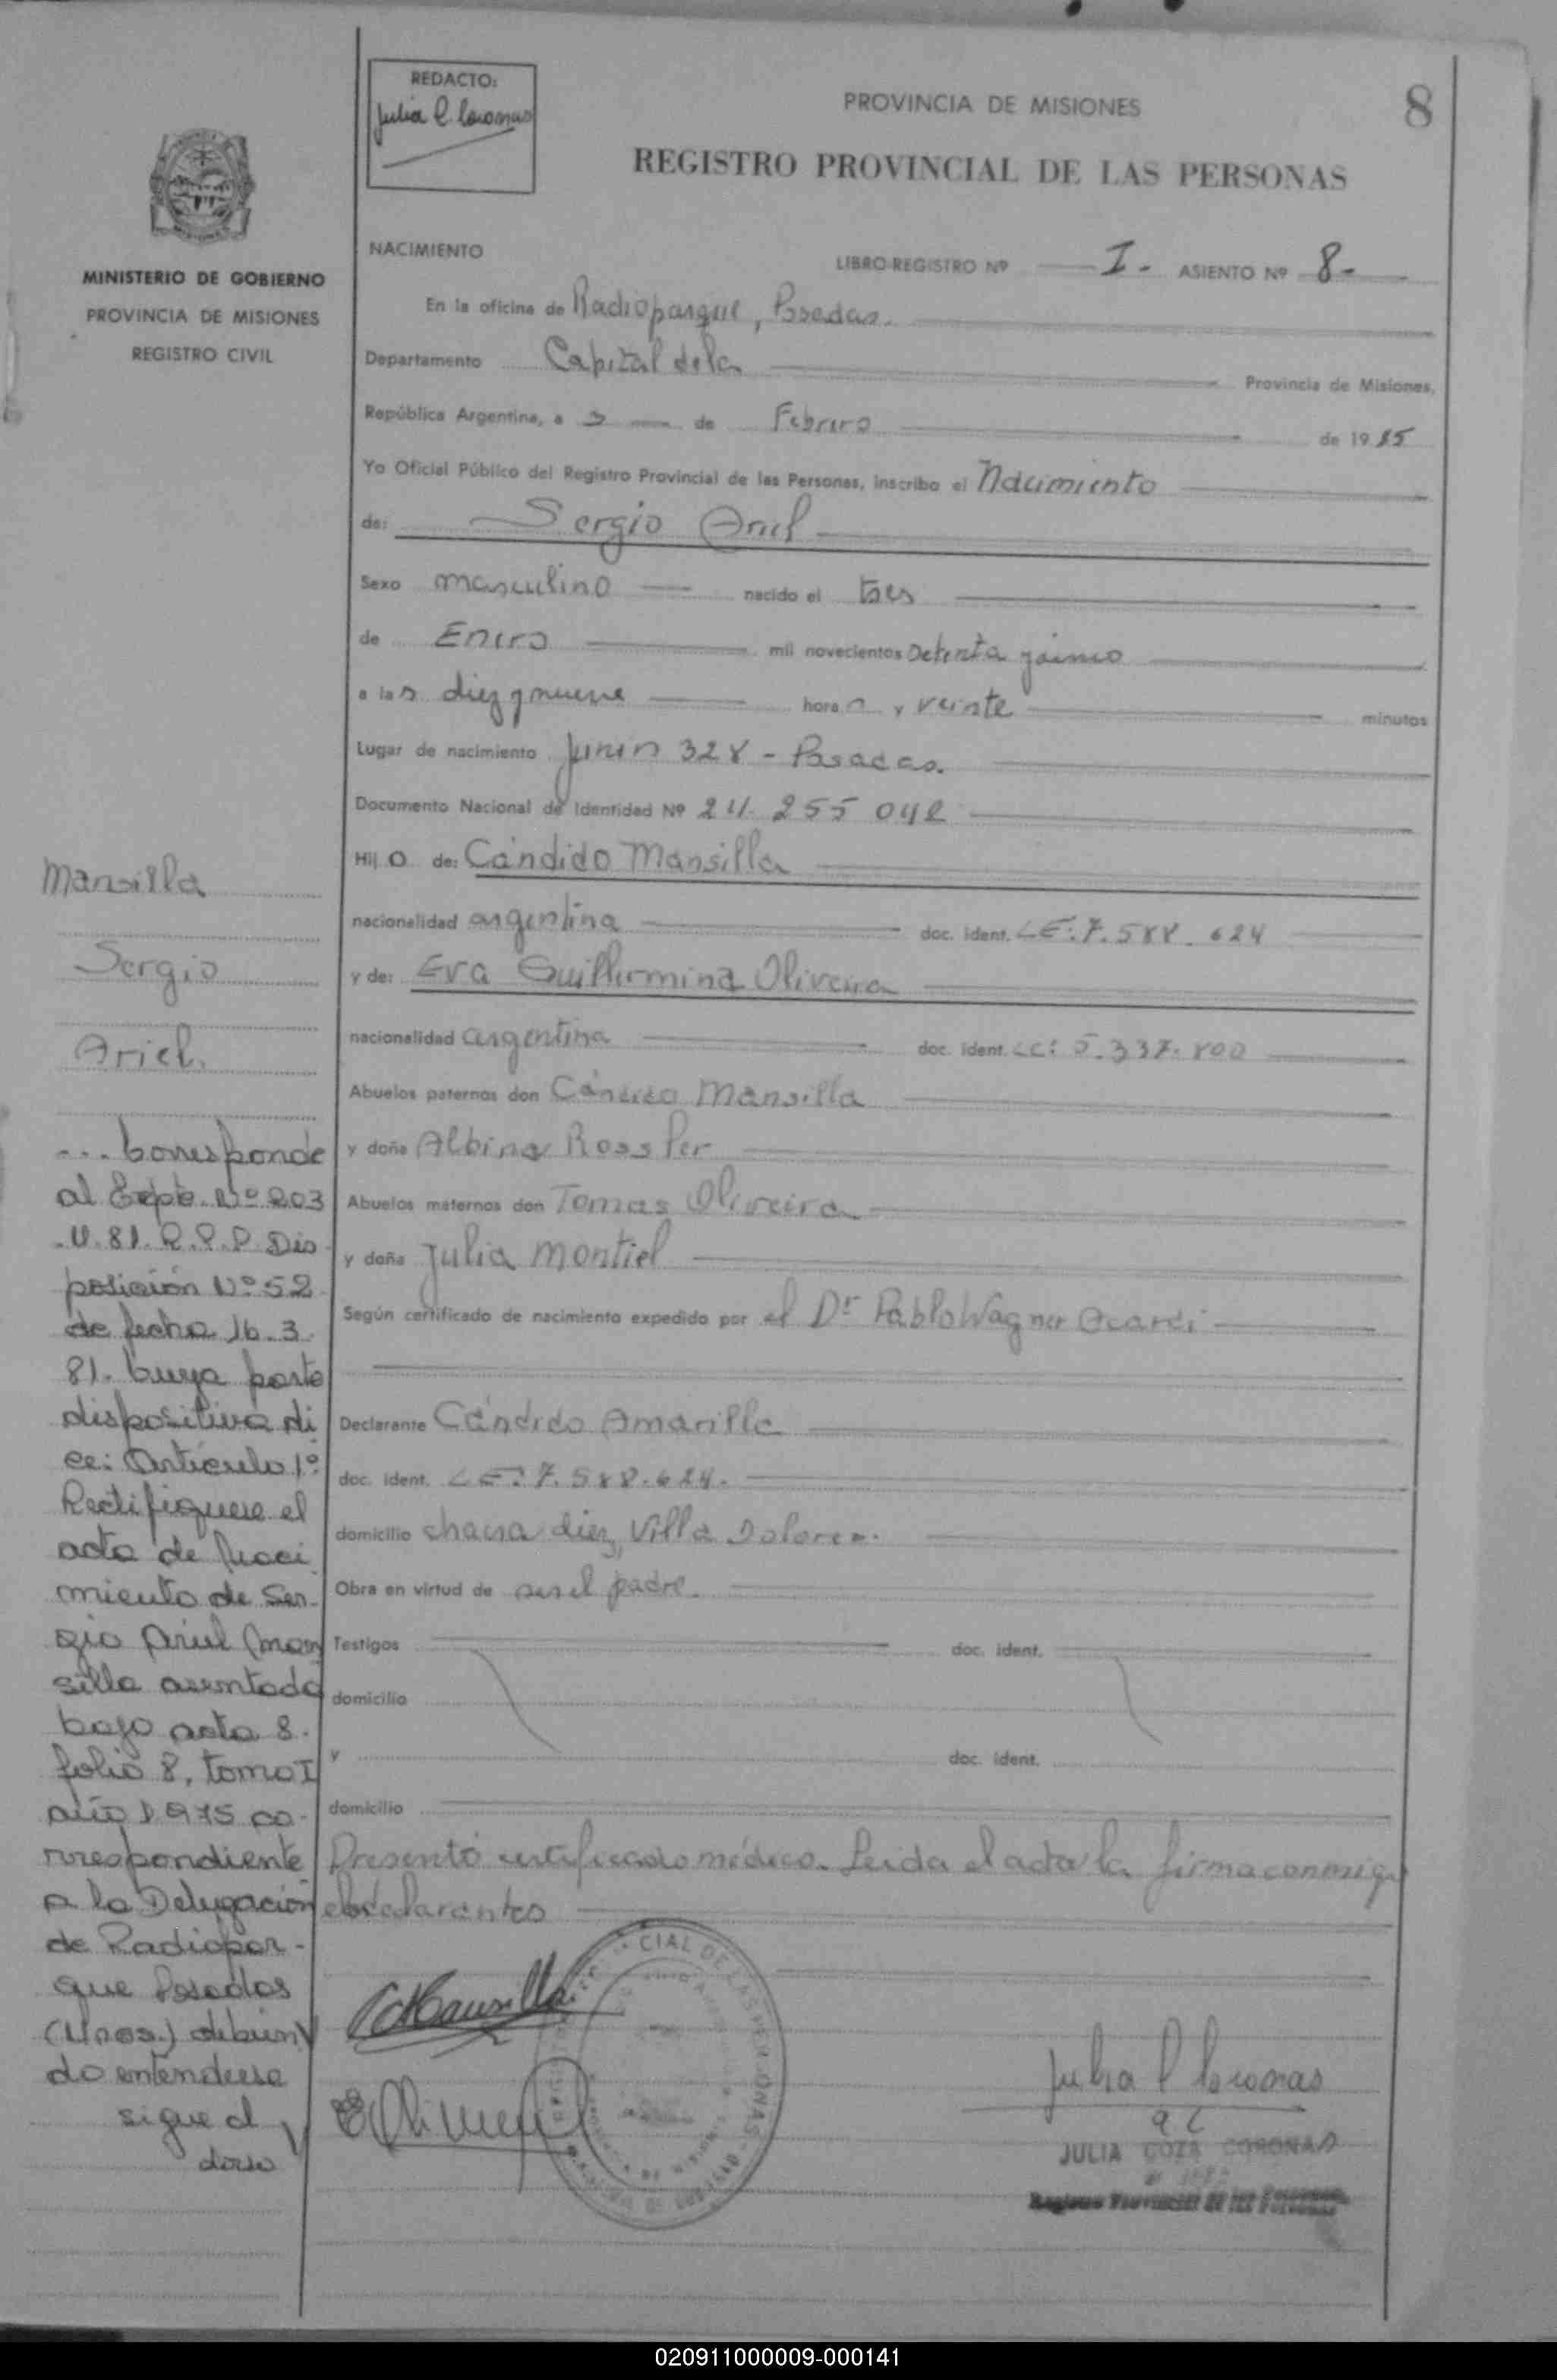 REDACTO:
Julia C. Coronas
PROVINCIA DE MISIONES
8
REGISTRO PROVINCIAL DE LAS PERSONAS
MINISTERIO DE GOBIERNO
PROVINCIA DE MISIONES
REGISTRO CIVIL
NACIMIENTO
LIBRO-REGISTRO Nº I- ASIENTO Nº 8-
En la oficina de Radioparque, Posadas.
Departamento Capital de la Provincia de Misiones,
República Argentina, a 3 de Febrero de 19
Yo Oficial Público del Registro Provincial de las Personas, inscribo el Nacimiento
de: Sergio Ariel
Sexo masculino nacido el tres
de Enero mil novecientos setenta y cinco
a las diez y nueve horas y veinte minutos
Lugar de nacimiento Junin 328 - Posadas.
Documento Nacional de Identidad Nº 24. 255 042
Hijo de: Cándido Mansilla
nacionalidad argentina doc. ident. LE: 7.588.624
y de: Eva Guillermina Oliveira
nacionalidad argentina doc. ident. LC: 5.337.800
Abuelos paternos don Cándido Mansilla
y doña Albina
Abuelos maternos don Tomas Oliveira
y doña Julia Montiel
Según certificado de nacimiento expedido por el Dr Pablo Wagner
Declarante Cándido
doc. ident. LE: 7.588.624.
domicilio chacra diez, Villa Dolores.
Obra en virtud de ser el padre.
Testigos doc. ident.
domicilio
y doc. ident.
domicilio
Presentó certificado médico. Leida el acta la firma conmigo
declarantes
CMansilla
Julia C Coronas
JULIA COZA CORONAS
Registro Provincial de las Personas
Mansilla
Sergio
Ariel.
... Corresponde
al Expte. Nº 203
.V.81. R.P.P Dis
posición Nº 52
de fecha 16.3.
81. Cuya parte
dispositiva di
ce: Artículo 1º
Rectifiquese el
acta de Naci
miento de Ser-
gio Ariel Man
silla asentada
bajo acta 8.
folio 8, tomo I
año 1975 co-
rrespondiente
a la Delegación
de Radiopar-
que Posadas
(Mnes.) debien
do entenderse
sigue al
dorso
020911000009-000141